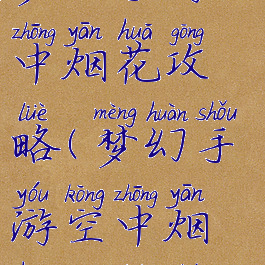 zhōng yān huā gōng
中烟花攻
lüè mèng huàn shǒu
略(梦幻手
yóu kōng zhōng yān
游空中烟